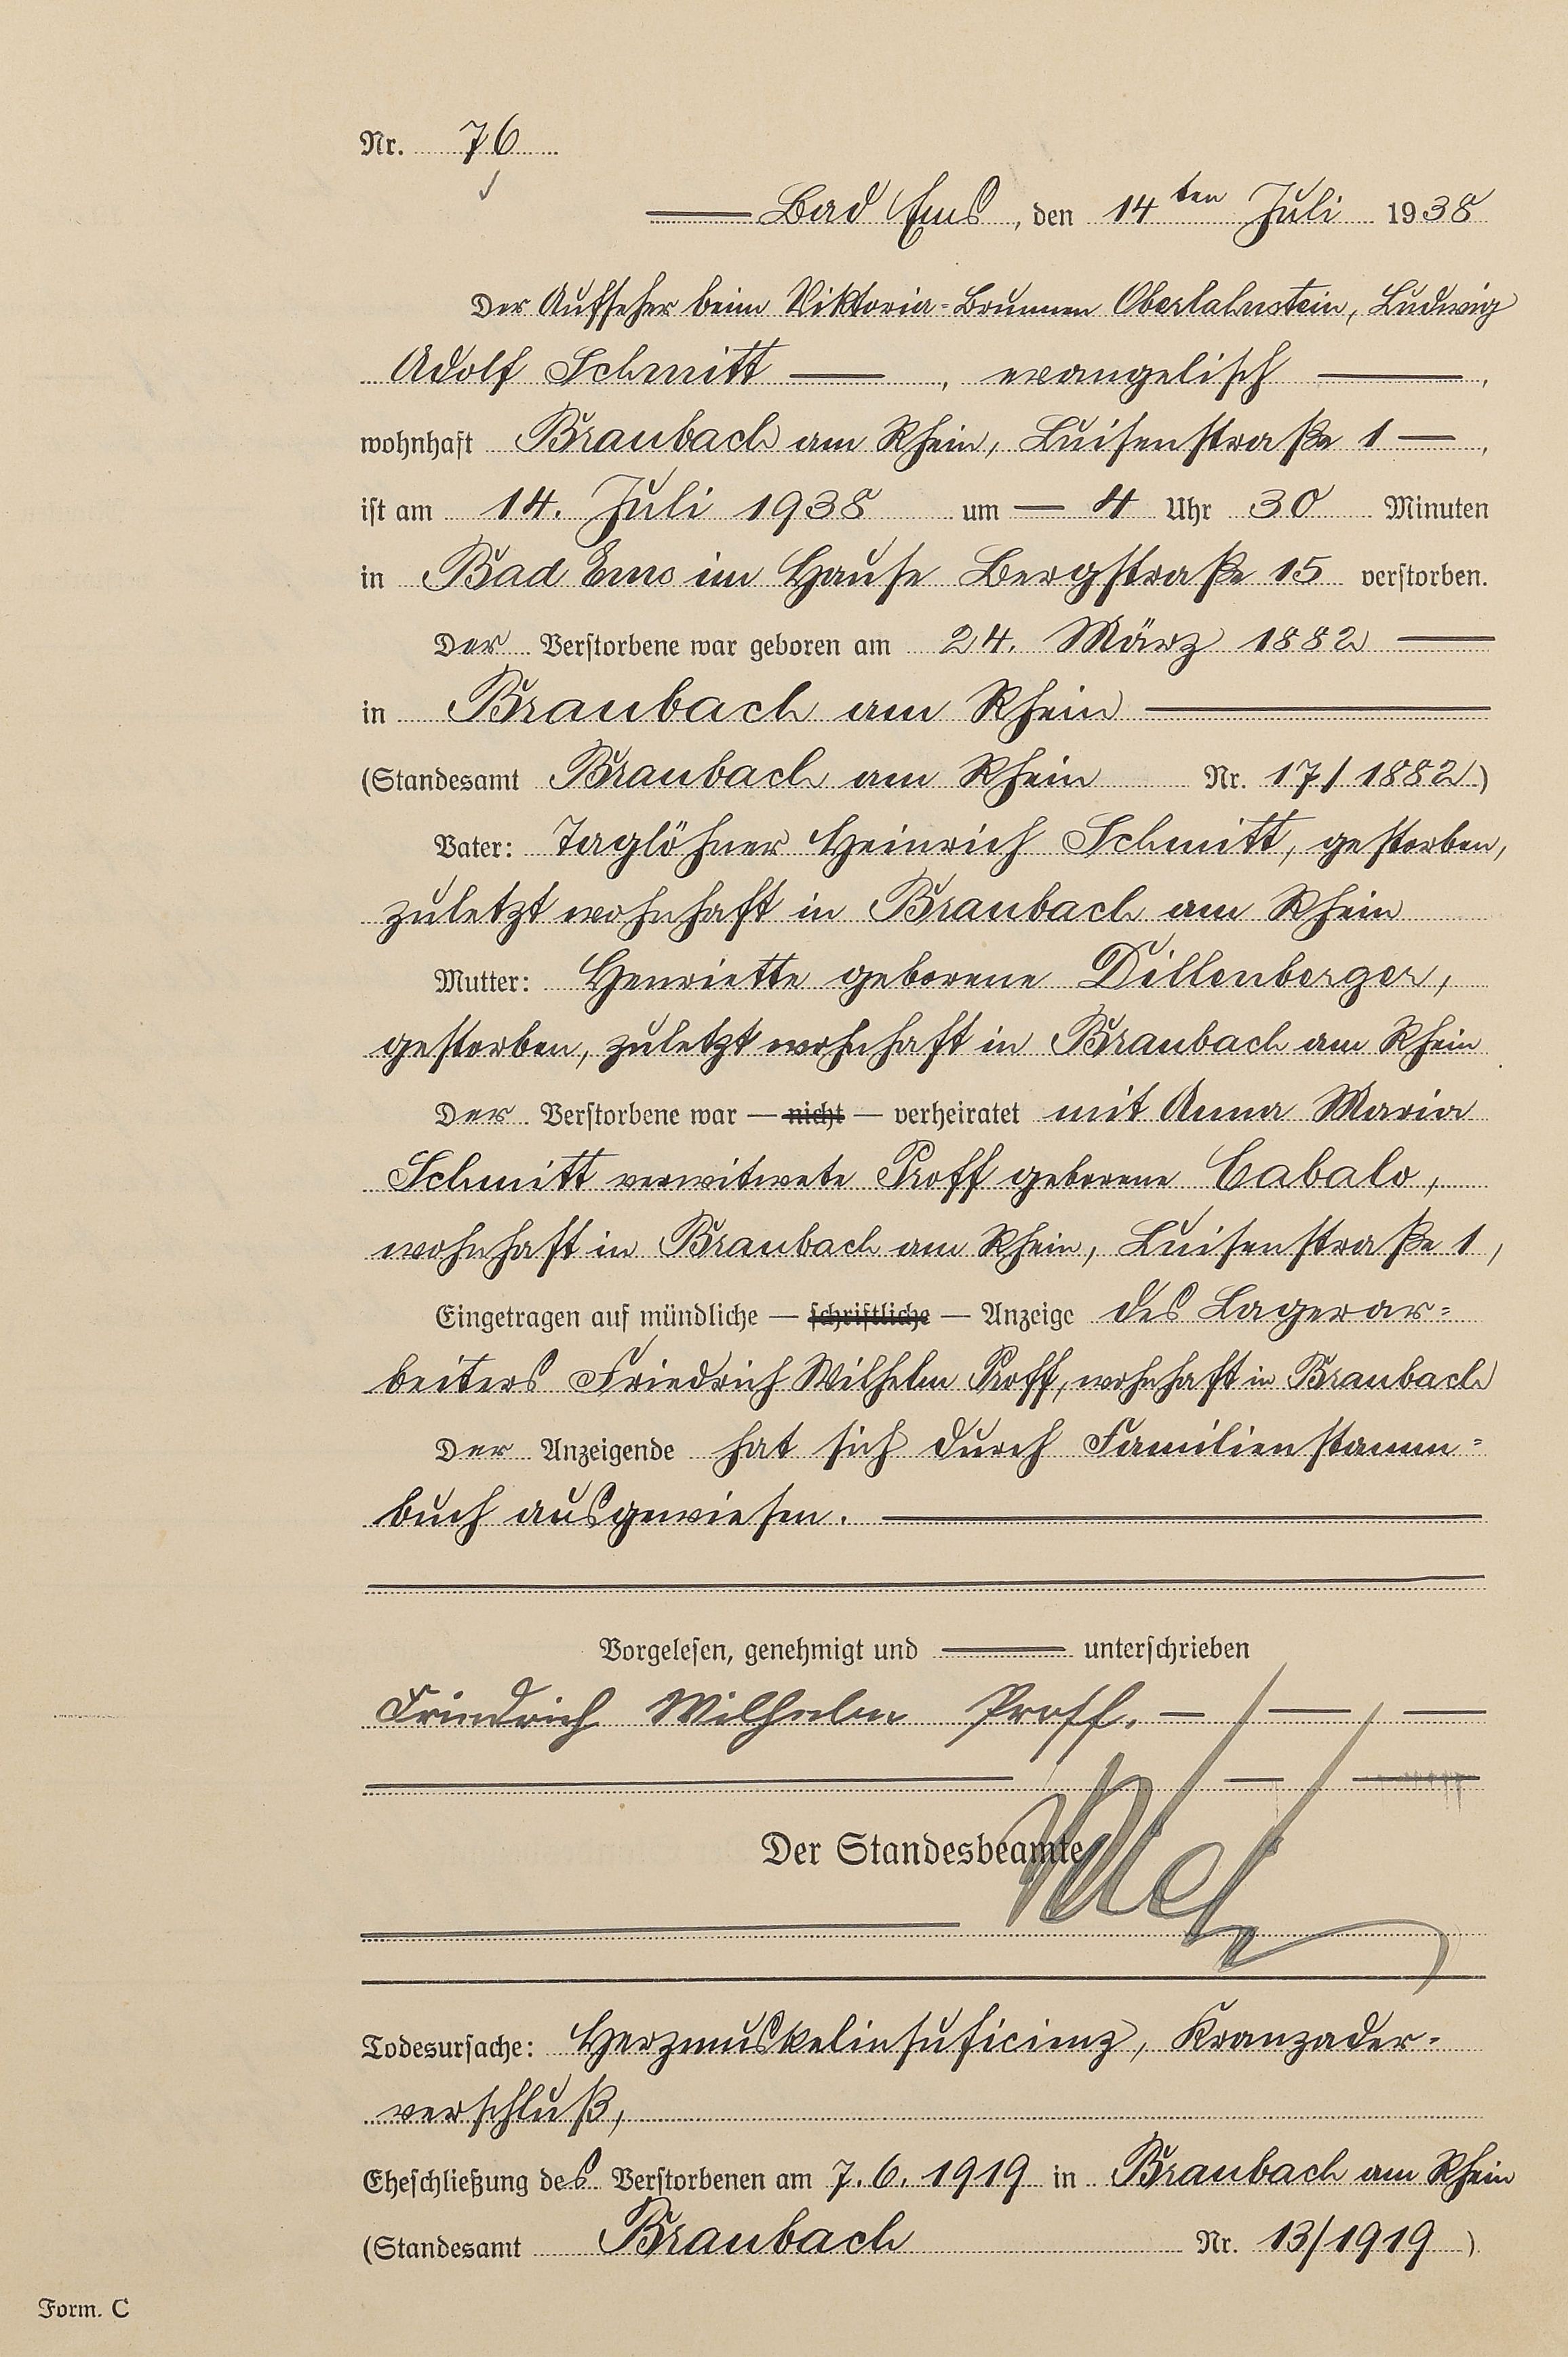 Nr. 76
Bad Ems, den 14ten Juli 1938
Der Aufseher beim Viktoria=Brunnen Oberlahnstein, Ludwig
Adolf Schmitt —, evangelisch —,
wohnhaft Braubach am Rhein, Luisenstraße 1 —,
ist am 14. Juli 1938 um — 4 Uhr 30 Minuten
in Bad Ems im Hause Bergstraße 15 verstorben.
Der Verstorbene war geboren am 24. März 1882 —
in Braubach am Rhein —
(Standesamt Braubach am Rhein Nr. 17/1882)
Vater: Taglöhner Heinrich Schmitt, gestorben,
zuletzt wohnhaft in Braubach am Rhein
Mutter: Henriette geborene Dillenberger,
gestorben, zuletzt wohnhaft in Braubach am Rhein
Der Verstorbene war — nicht — verheiratet mit Anna Maria
Schmitt verwitwete Proff geborene Cabalo,
wohnhaft in Braubach am Rhein, Luisenstraße 1,
Eingetragen auf mündliche — schriftliche — Anzeige des Lagerar=
beiters Friedrich Wilhelm Proff, wohnhaft in Braubach
Der Anzeigende hat sich durch Familienstamm=
buch ausgewiesen. —
Vorgelesen, genehmigt und — unterschrieben
Friedrich Wilhelm Proff. — — —
Der Standesbeamte
Todesursache: Herzmuskelinsuficienz, Kranzader=
verschluß,
Eheschließung des Verstorbenen am 7.6.1919 in Braubach am Rhein
(Standesamt Braubach Nr. 13/1919)
Form. C